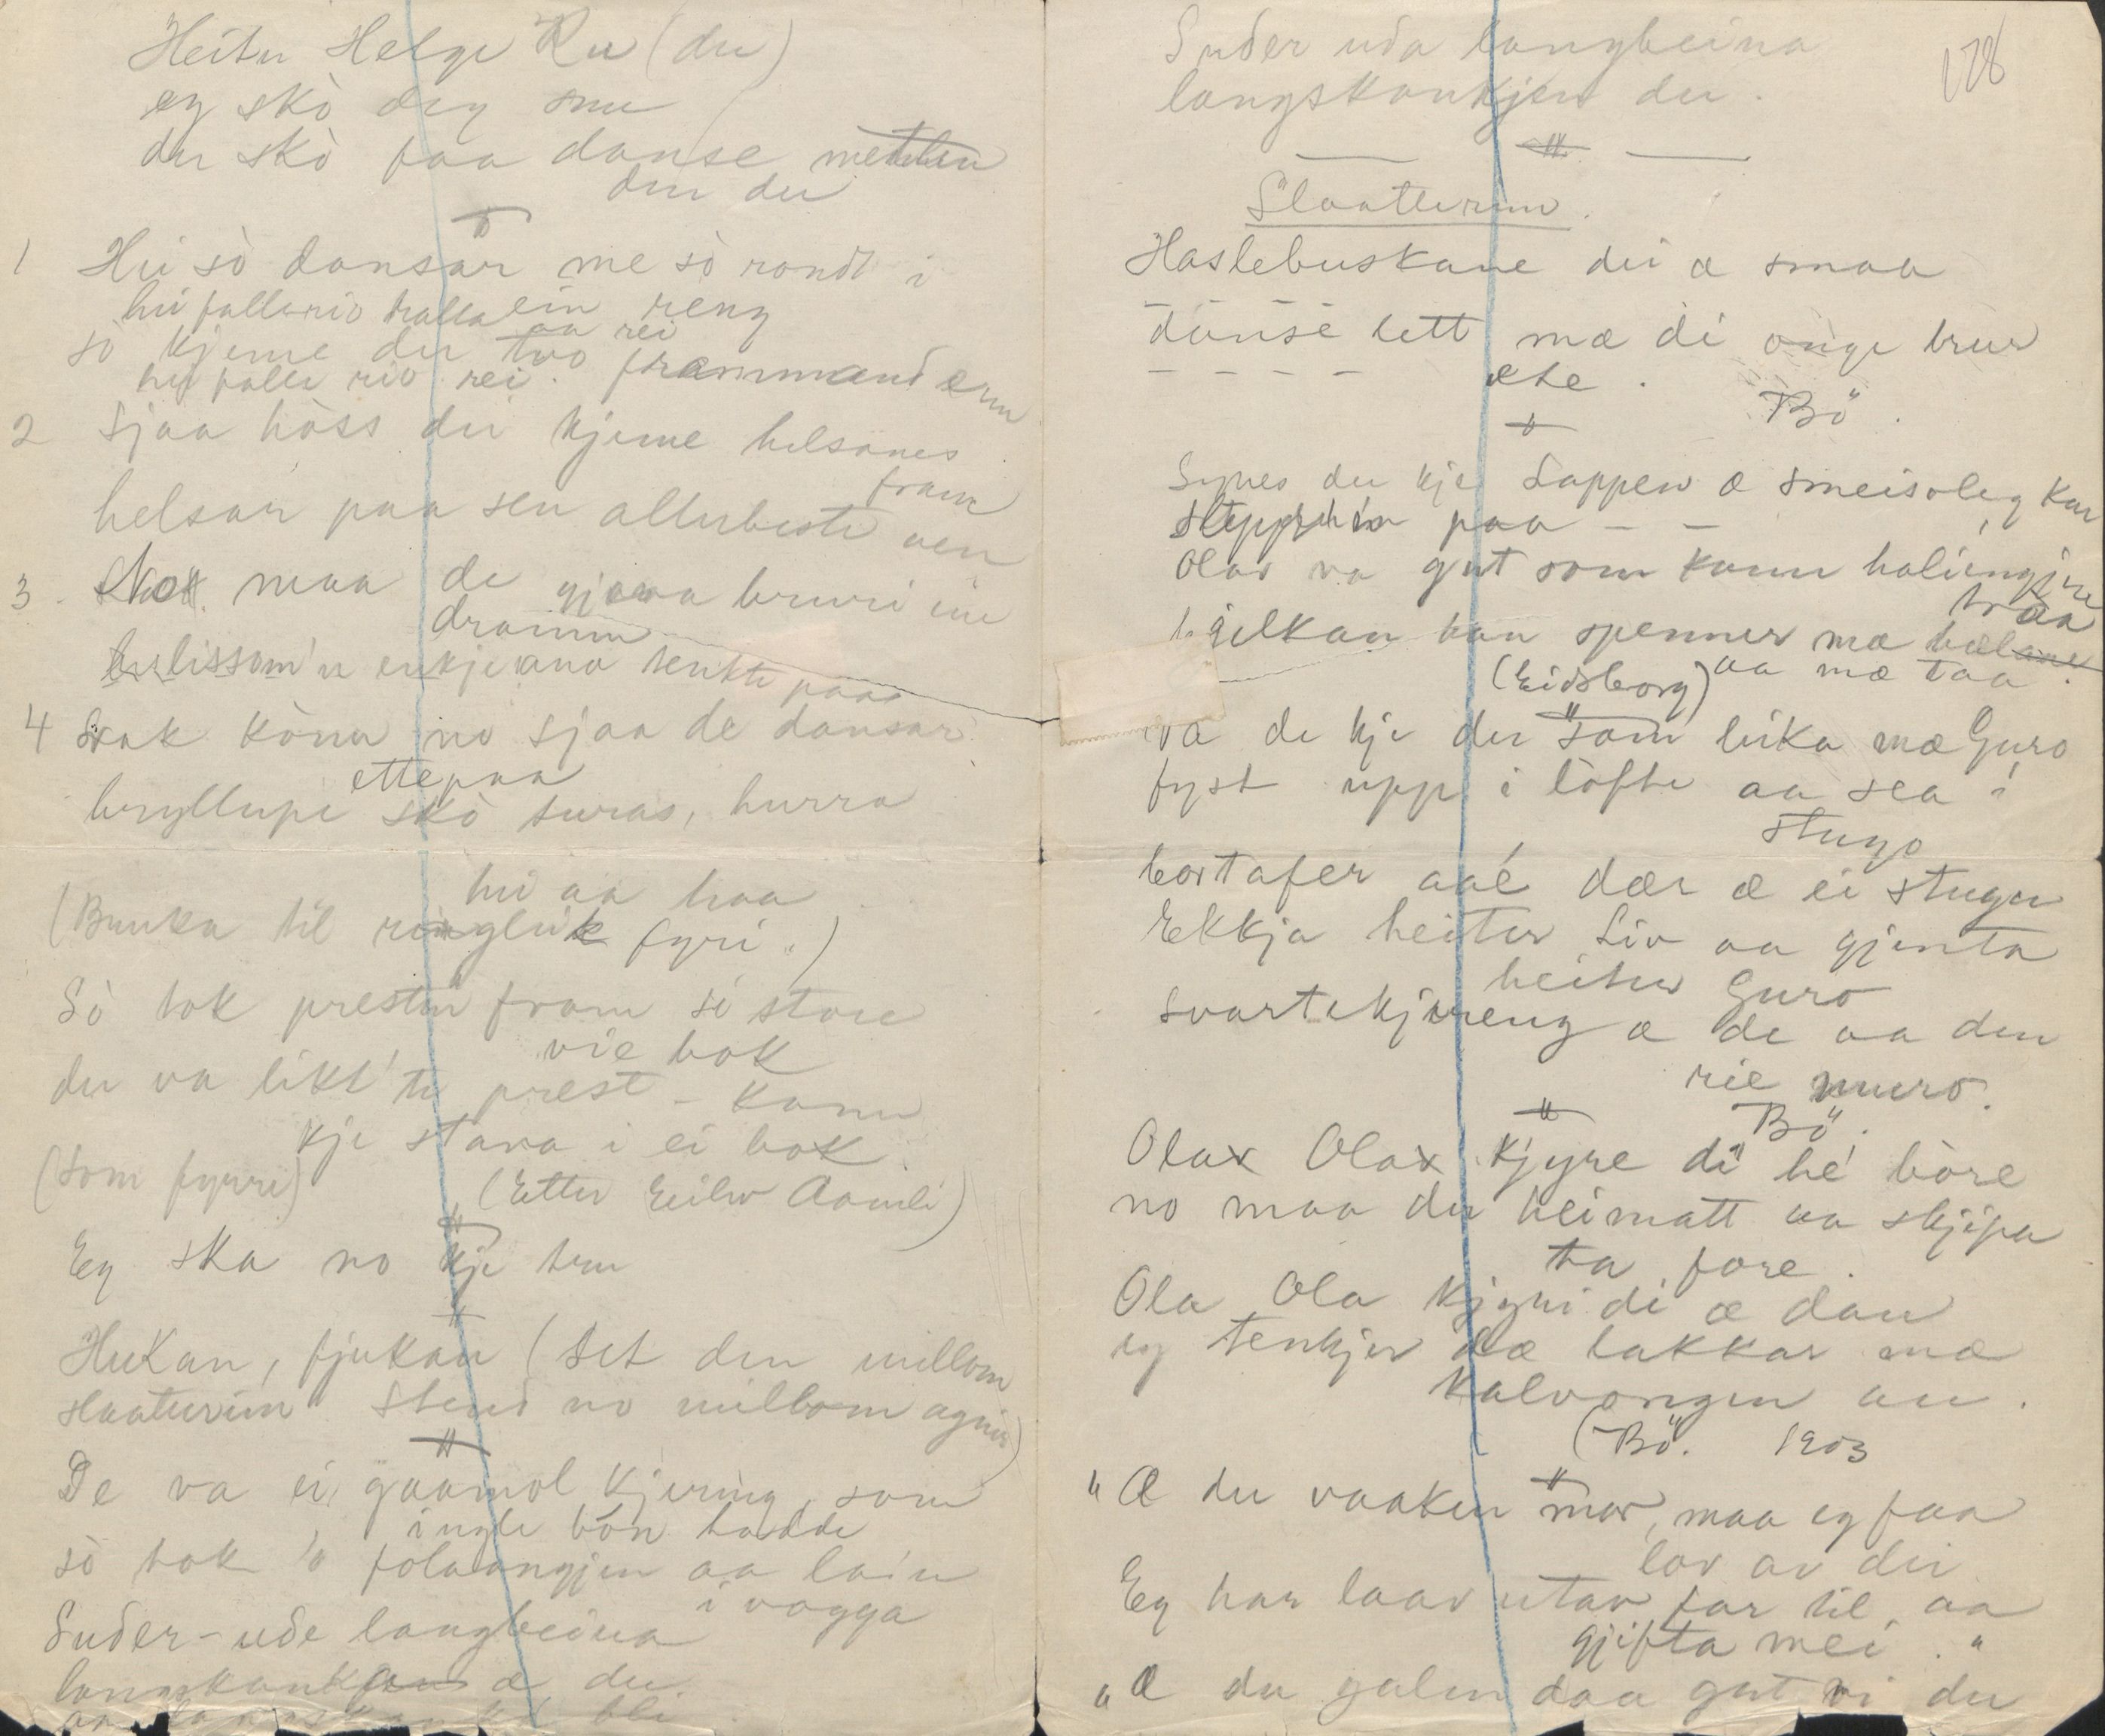 Heitu Helge Ru (du)
eg skò deg snu
du skò faa danse
den du
1 Hei sò dansar me sò rondt i
hei fallerio tralla ein reng
aa rei
sò kjeme dei tvo frammand enn
hei falle rio rei.
2 Sjaa hòss dei kjeme helsanes
fram
helsar paa sen allerbeste ven
3. maa de gjæra bruri ein
dramm
enkje ana tenkte paa
4 Snak kònn no sjaa de dansar
ettepaa
bryllupe skò turas, hurra
hei aa haa
(Bunka til fyri.)
Sò tok presten fram si store
vie bok
du va likt te prest - kann
kje stava i ei bok.
(som fyrri) (Etter Eilev Aamli)
Eg ska no kje tru
Hukan, fjukan (Set den millom
slaatterim Stend no millom agnir)
De va ei gaamol kjering, som
ingle bòn hadde
sò tok 'o folaongjen aa la'n
i vogga
Suder-ude langbeina
langskankjen æ du.
bli
178
Suder uda langbeina
langskankjen du.
Slaatterim.
Haslebuskane dei æ smaa
danse lett mæ di onge brur
- - - - ete.
Bö.
Synes du kje Lappen æ smeisoleg kar
paa - -
Olav va gut som kunn halingjine
traa
han spenner mæ
aa mæ taa.
(Eidsborg)
va de kje du som leika mæ Guro
fyst upp i lofte aa sea i
stugo
bortafer aaé dær æ ei stugu
Ekkja heiter Liv aa gjenta
heiter Guro
Svartekjireng æ de aa den
rie muro.
Bö.
Olax Olax kjyre di hé bòre
no maa du heimatt aa skjipa
ta fore.
Ola Ola kjyri di æ dau
eg tenkjer dæ lakkar mæ
kalvongen au.
(Bö. 1903
"Æ du vaaken mor, maa eg faa
lov av dei
Eg har laav utav far til, aa
gjifta mei."
"Æ du galen daa gut vi du